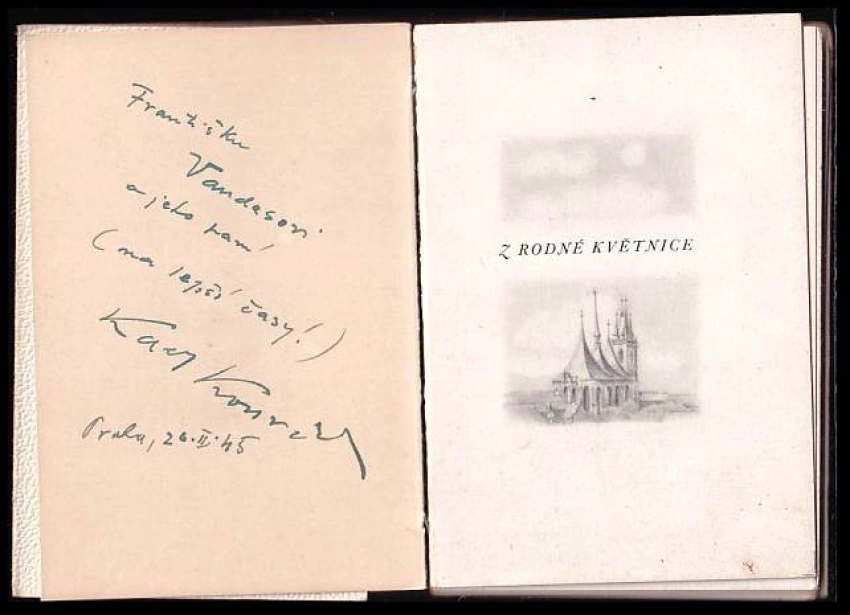 Františku
Vandasovi
a jeho paní
(na lepší časy!)
Karel
Praha, 20.II.45
Z RODNÉ KVĚTNICE